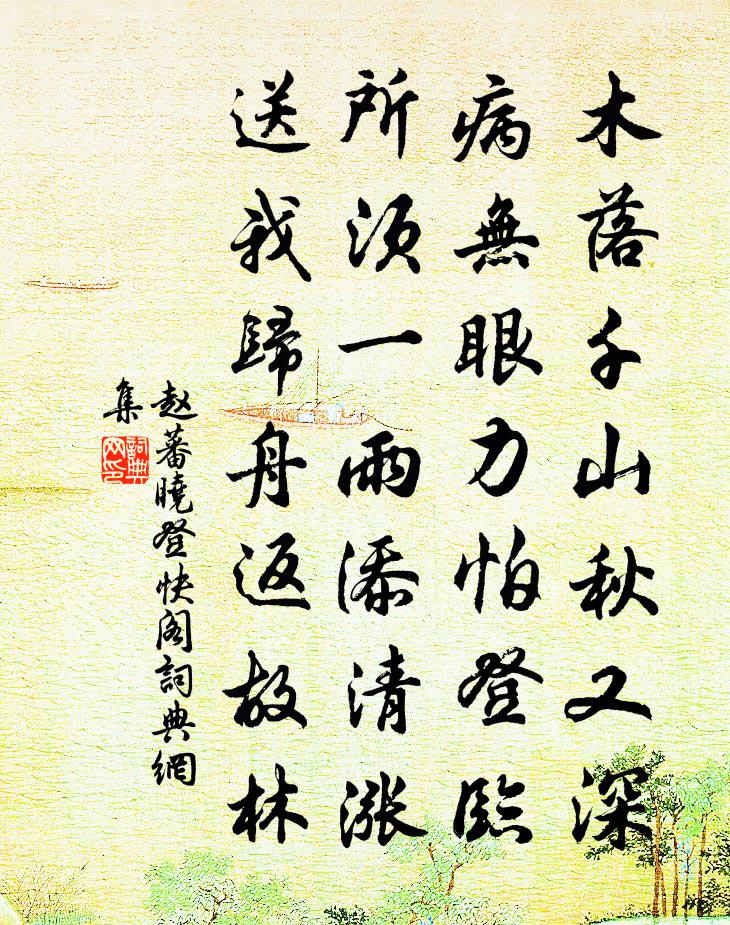 木落千山秋又深
病無眼力怕登臨
所須一雨添清漲
送我歸舟返故林
赵蕃曉登快阁詞典網
集
詞典
网印